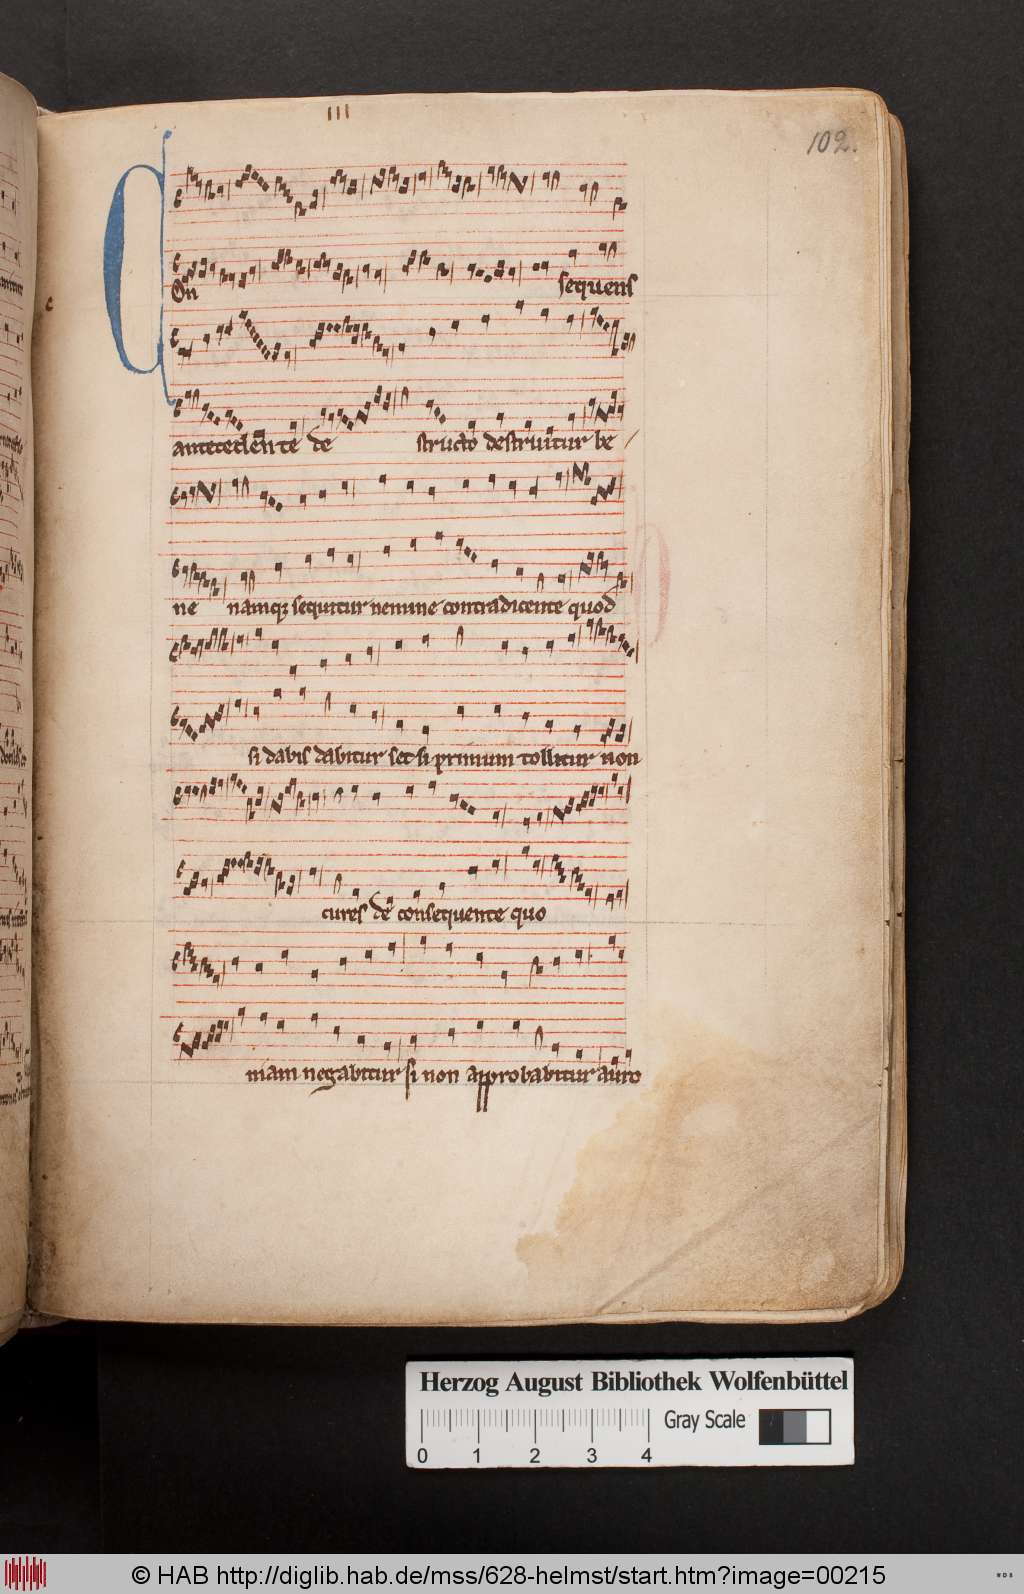 III
102.
C
c
On sequens
antecedente de structo destruitur be
ne namq; sequitur nemine contradicente quod
si dabis dabitur set si primum tollitur non
cures de consequente quo
niam negabitur si non approbabitur auro
Herzog August Bibliothek Wolfenbüttel
Gray Scale
0 1 2 3 4
© HAB http://diglib.hab.de/mss/628-helmst/start.htm?image=00215